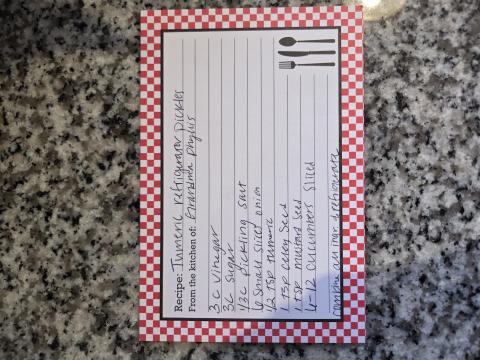 Recipe: Tumeric refrigerator pickles
From the kitchen of: Grandma Phyllis
3 C Vinegar
3C sugar
1/3C pickling salt
6 small sliced onion
1/2 tsp tumeric
1 tsp celery seed
1 tsp mustard seed
6-12 cucumbers sliced
combine all in jar & refrigerate